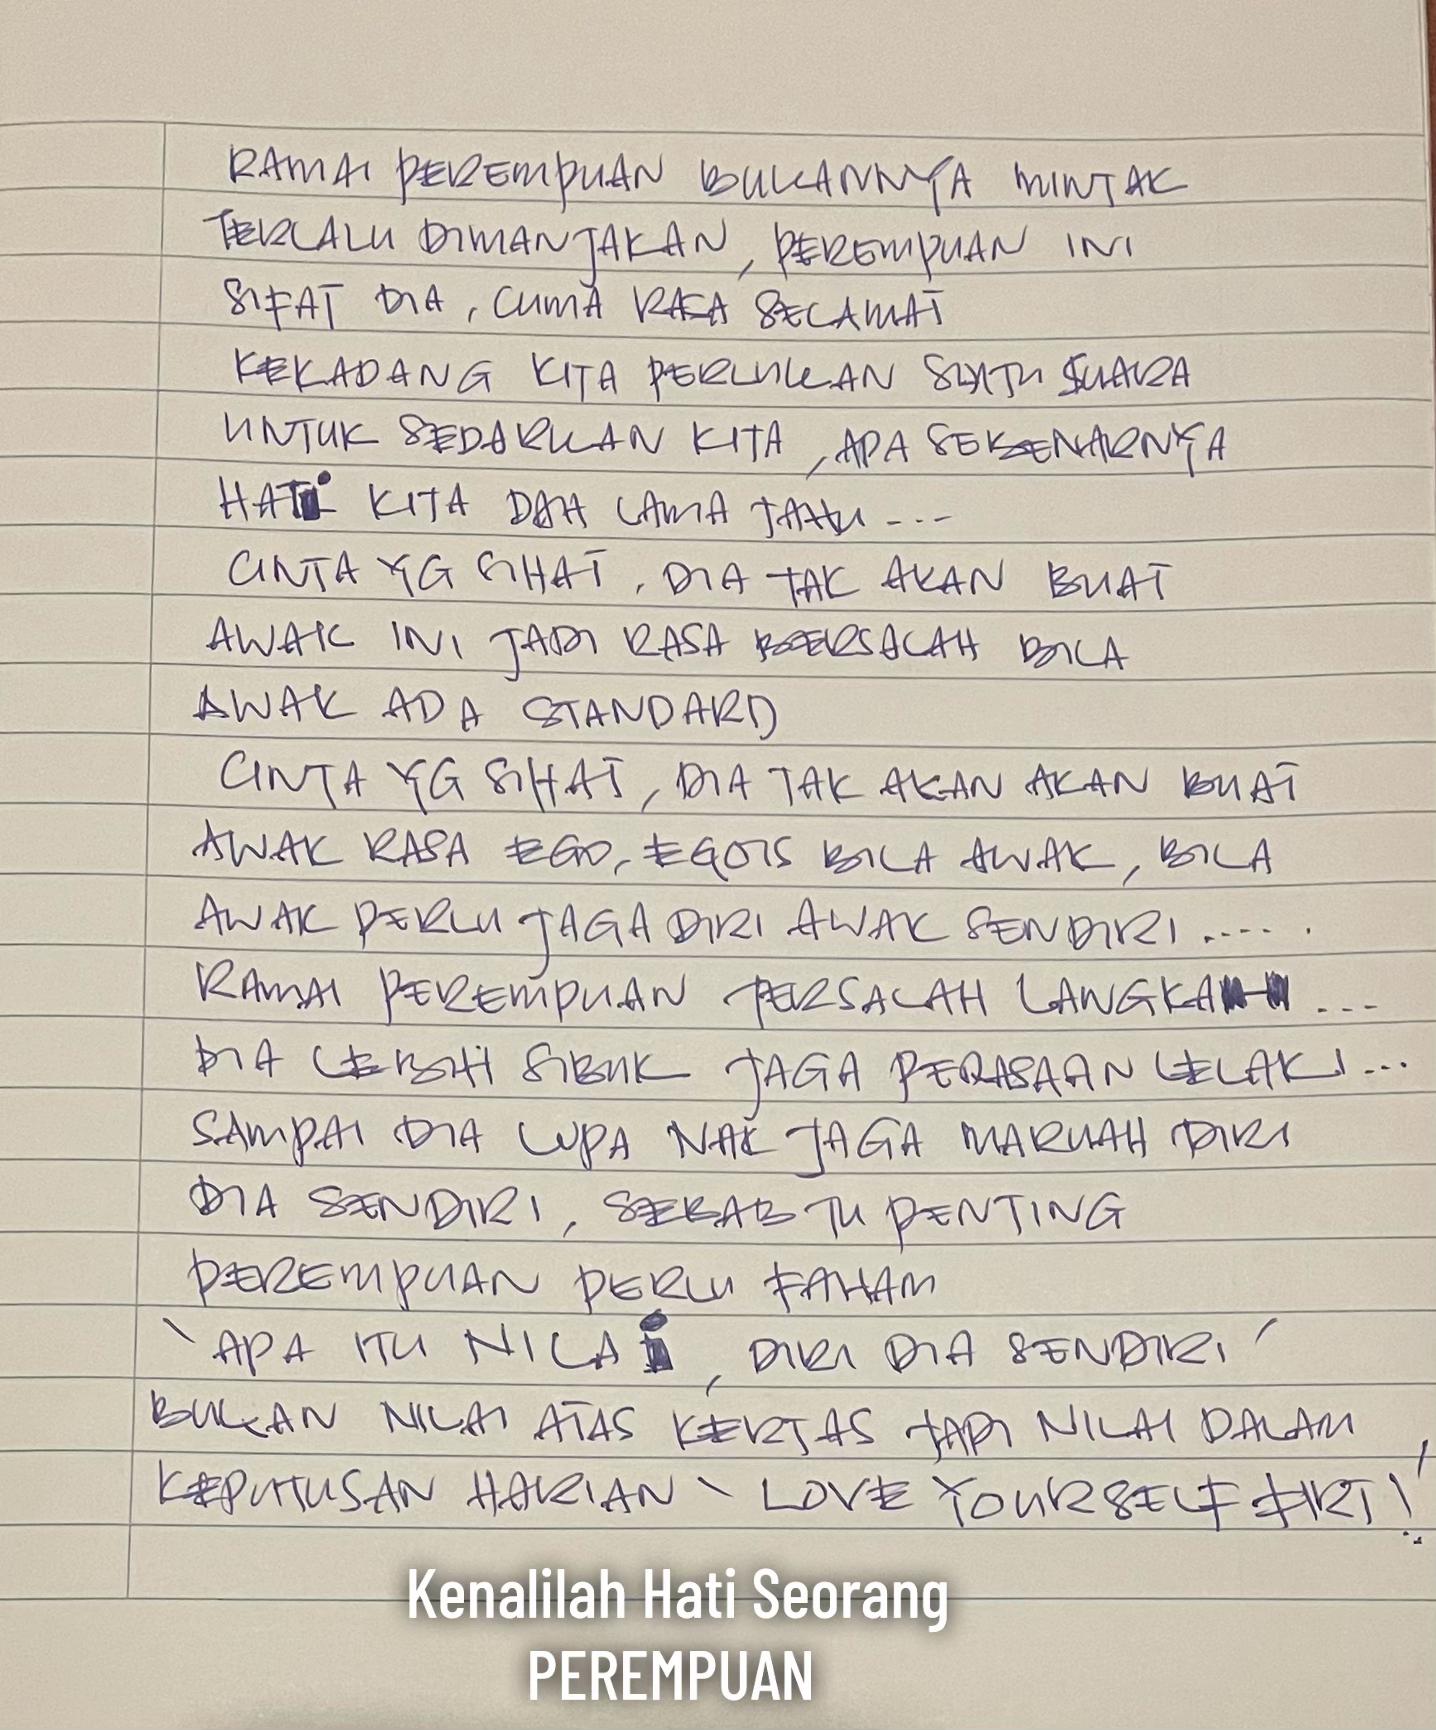 RAMAI PEREMPUAN BUKANNYA MINTAK
TERLALU DIMANJAKAN, PEREMPUAN INI
SIFAT DIA, CUMA RASA SELAMAT
KEKADANG KITA PERLUKAN SUATU SUARA
UNTUK SEDARKAN KITA, APA SEBENARNYA
HATI KITA DAH LAMA TAHU...
CINTA YG SIHAT, DIA TAK AKAN BUAT
AWAK INI JADI RASA BERSALAH BILA
AWAK ADA STANDARD
CINTA YG SIHAT, DIA TAK AKAN AKAN BUAT
AWAK RASA EGO, EGOIS BILA AWAK, BILA
AWAK PERLU JAGA DIRI AWAK SENDIRI.....
RAMAI PEREMPUAN TERSALAH LANGKAH ...
DIA LEBIH SIBUK JAGA PERASAAN LELAKI...
SAMPAI DIA LUPA NAK JAGA MARUAH DIRI
DIA SENDIRI, SEBAB TU PENTING
PEREMPUAN PERLU FAHAM
'APA ITU NILAI, DIRI DIA SENDIRI'
BUKAN NILAI ATAS KERTAS TAPI NILAI DALAM
KEPUTUSAN HARIAN ' LOVE YOURSELF FIRT!'
Kenalilah Hati Seorang
PEREMPUAN